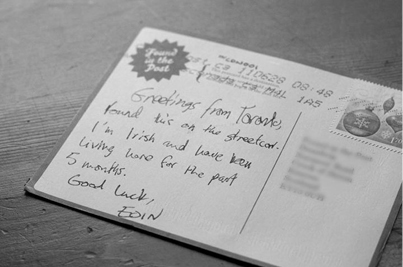 Found
in the
Post
110628 08:48
145
Greetings from Toronto,
Found this on the streetcar.
I'm Irish and have been
living here for the past
5 months.
Good Luck,
EOIN